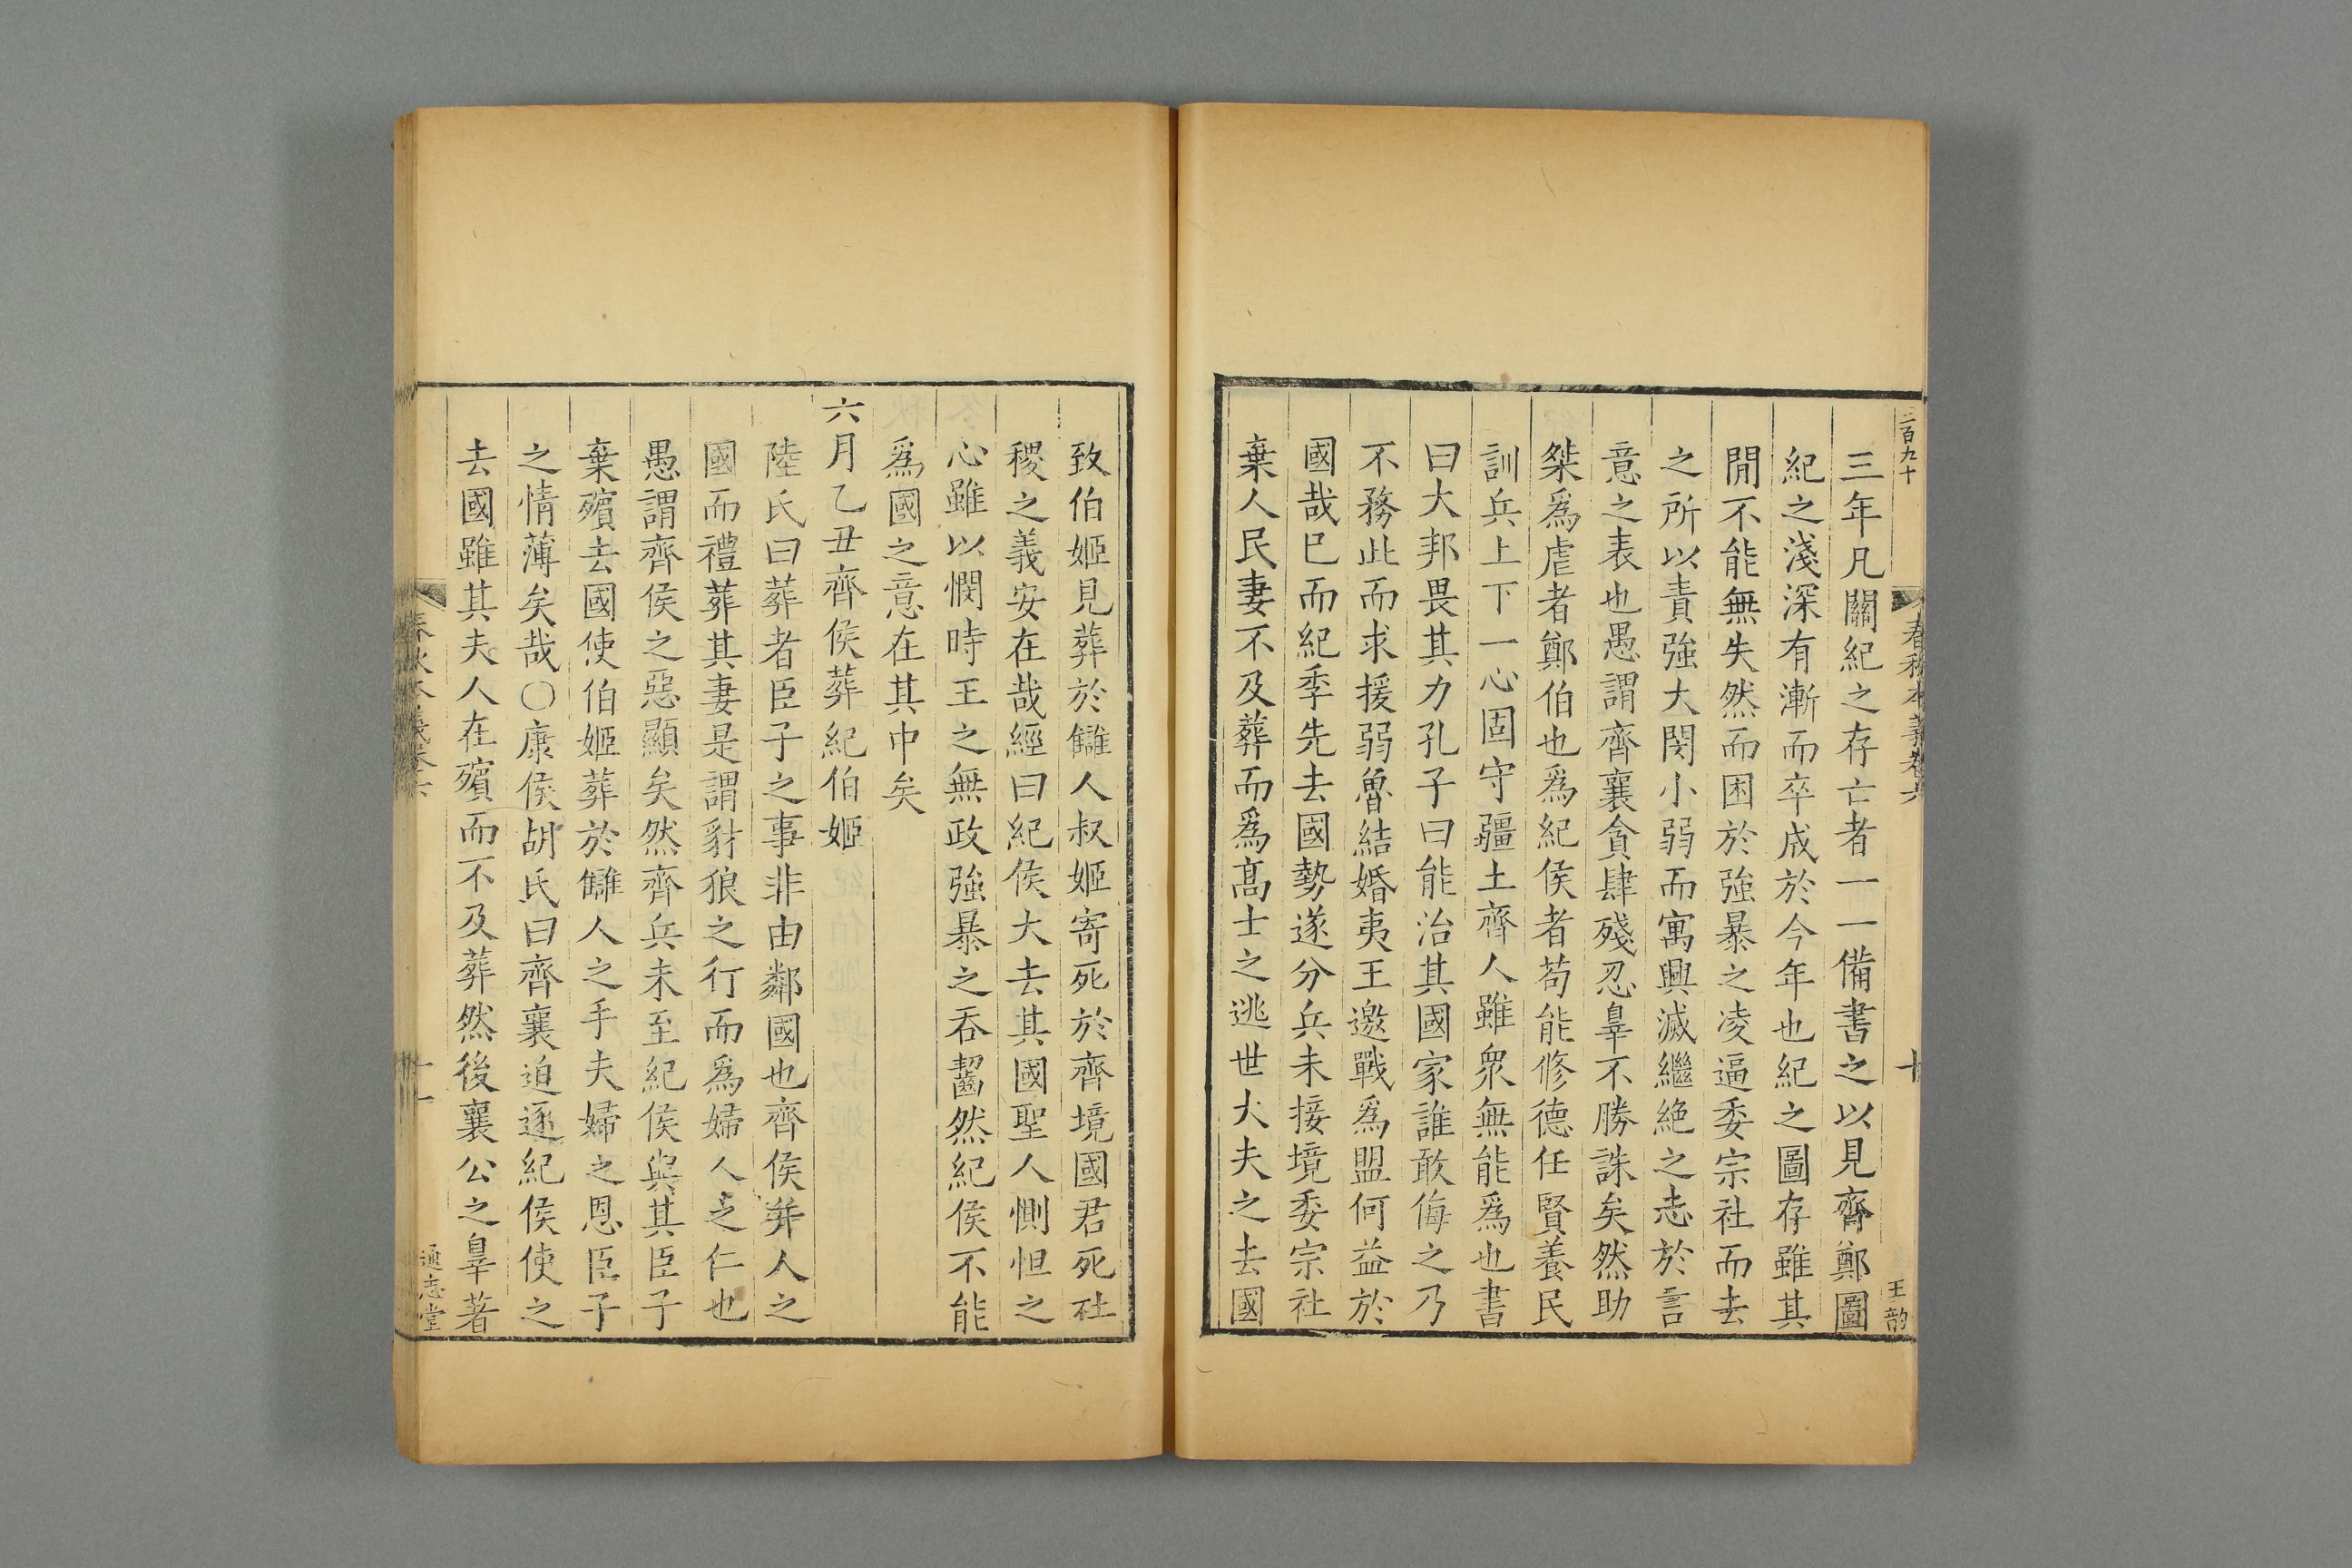 三百九十
春秋本義卷六
十
王韵
三年凡關紀之存亡者一一備書之以見齊鄭圖
紀之淺深有漸而卒成於今年也紀之圖存雖其
閒不能無失然而困於強暴之凌逼委宗社而去
之所以責強大閔小弱而寓興滅繼絶之志於言
意之表也愚謂齊襄貪肆殘忍辠不勝誅矣然助
桀爲虐者鄭伯也爲紀侯者苟能修德任賢養民
訓兵上下一心固守疆土齊人雖衆無能爲也書
曰大邦畏其力孔子曰能治其國家誰敢侮之乃
不務此而求援弱魯結婚夷王邀戰爲盟何益於
國哉巳而紀季先去國勢遂分兵未接境委宗社
棄人民妻不及葬而爲髙士之逃世大夫之去國
致伯姬見葬於讎人叔姬寄死於齊境國君死社
稷之義安在哉經曰紀侯大去其國聖人惻怛之
心雖以憫時王之無政強暴之吞齧然紀侯不能
爲國之意在其中矣
六月乙丑齊侯葬紀伯姬
陸氏曰葬者臣子之事非由鄰國也齊侯并人之
國而禮葬其妻是謂豺狼之行而爲婦人之仁也
愚謂齊侯之惡顯矣然齊兵未至紀侯與其臣子
棄殯去國使伯姬葬於讎人之手夫婦之恩臣子
之情薄矣哉○康侯胡氏曰齊襄迫逐紀侯使之
去國雖其夫人在殯而不及葬然後襄公之辠著
春秋本義卷六
十一
通志堂